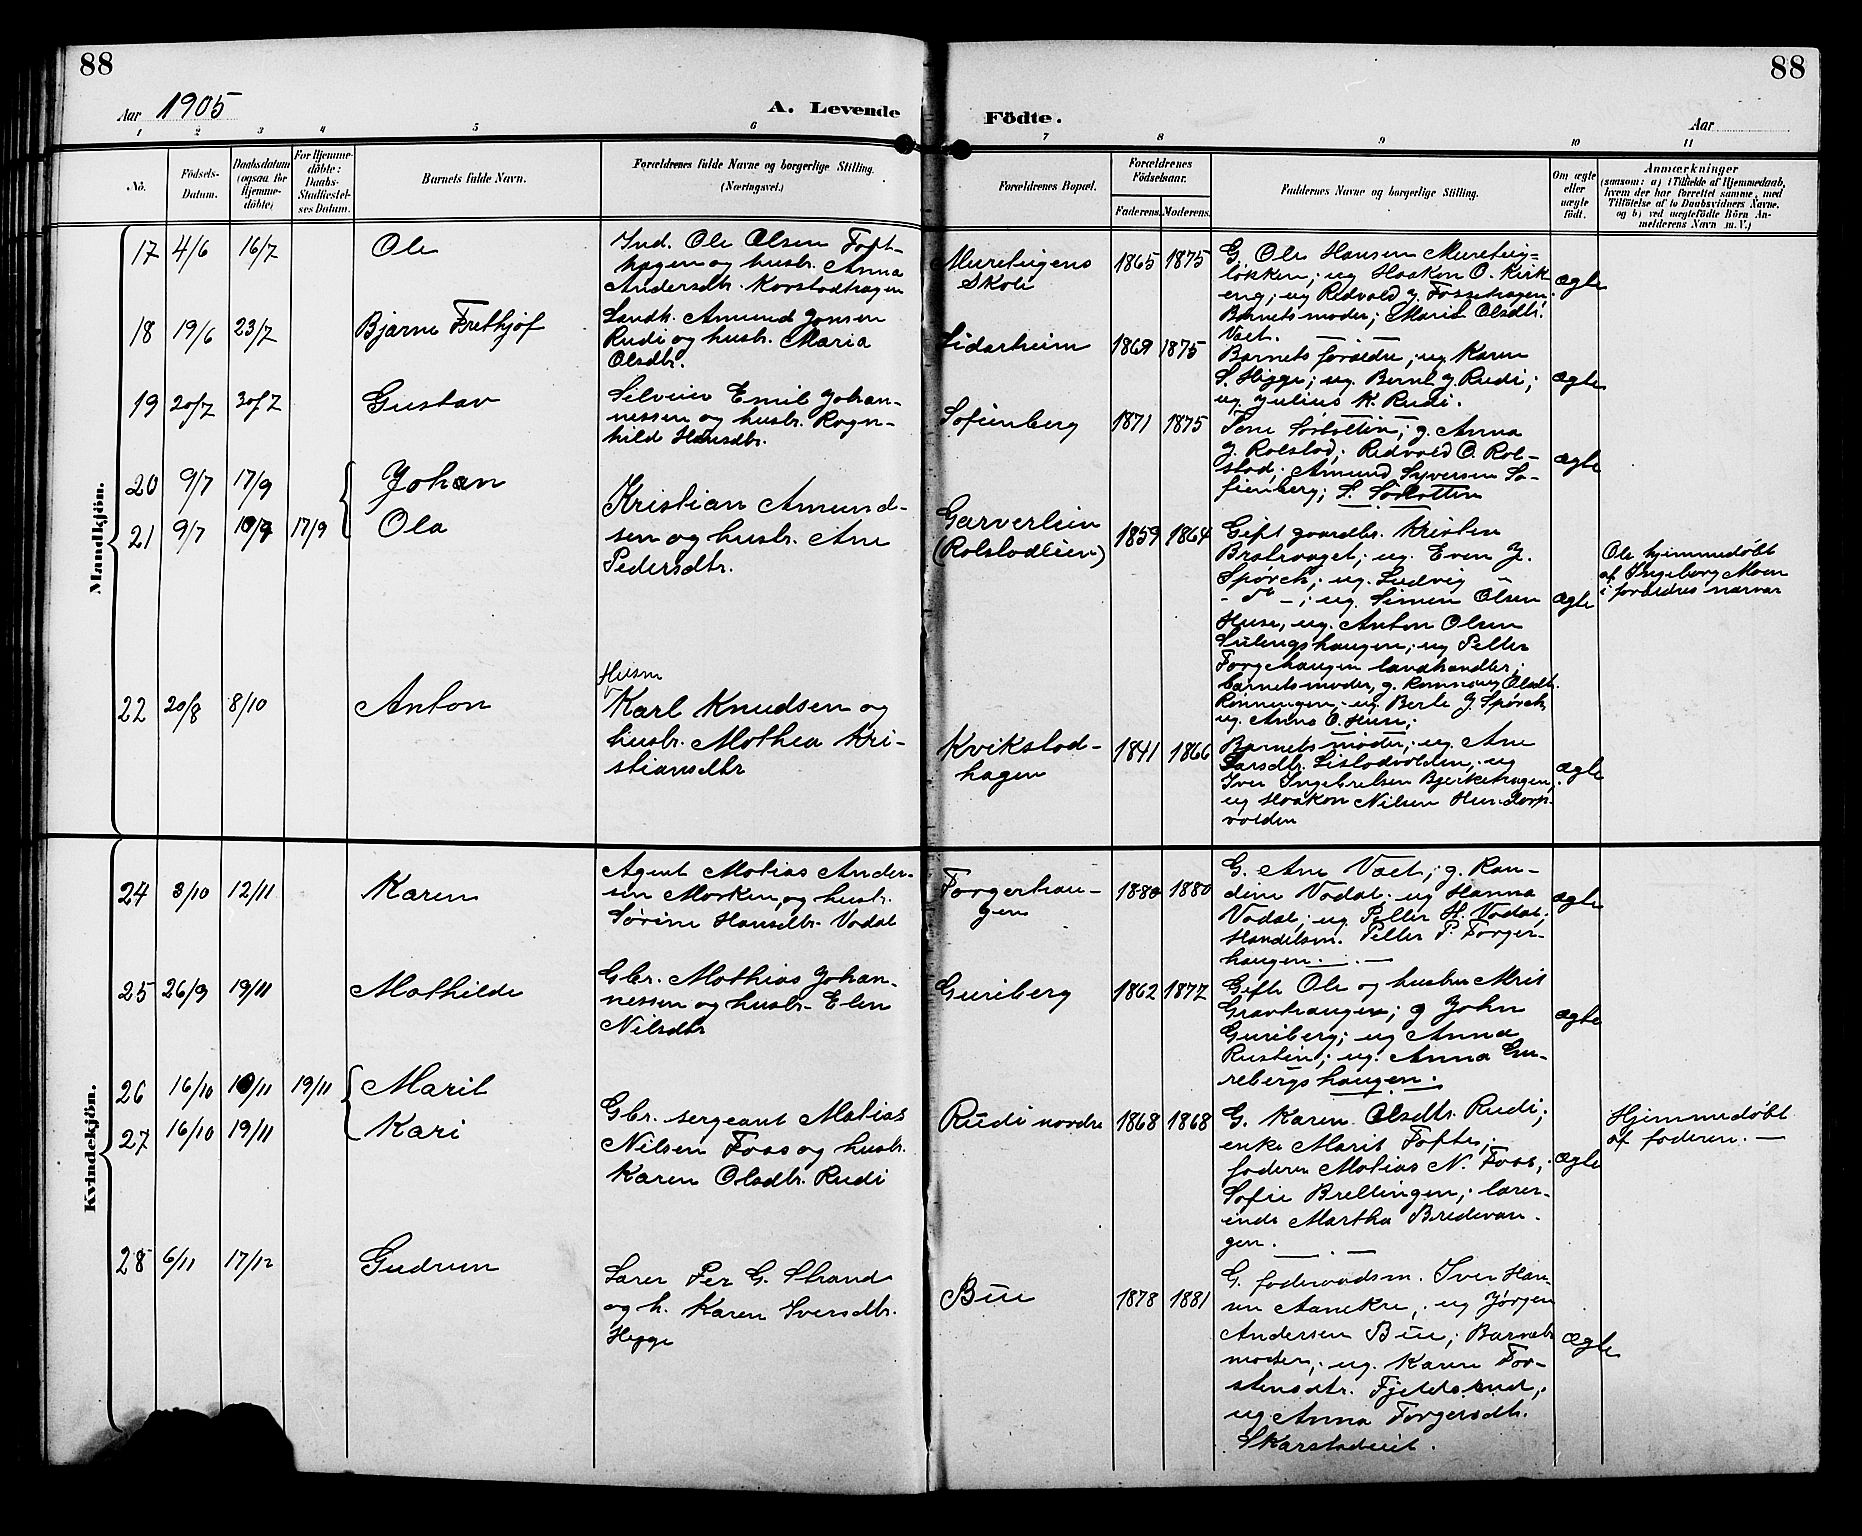 88
88
Aar 1905
A. Levende
Födte.
Aar
1 2 3 4 5 6 7 8 9 10 11
No.
Födsels-
Datum.
Daabsdatum
(ogsaa for
Hjemme-
döbte)
For Hjemme-
döbte:
Daabs-
Stadfæstel-
ses Datum.
Barnets fulde Navn.
Forældrenes fulde Navne og borgerlige Stilling.
(Næringsvei.)
Forældrenes Bopæl.
Forældrenes
Födselsaar.
Faderens.
Moderens.
Faddernes Navne og borgerlige Stilling.
Om ægte
eller
uægte
født.
Anmærkninger
(saasom: a) i Tilfælde af Hjemmedaab,
hvem der har forrettet samme, med
Tilföielse af to Daabsvidners Navne,
og b) ved uægtefödte Börn An-
melderens Navn m. V.)
Mandkjön.
17 4/6 16/7
Ole
Ind. Ole Olsen Toft-
hagen og hustr. Anna
Andersdtr. Korstadhagen
Skole
1865 1875
G. Ole Hansen
løkken; ug Haakon O. Kirk
eng; ug Redvald J. Fossehagen;
Barnets moder; Marie Olsdtr.
Vaet.
ægte
18 19/6 23/7
Bjarne Frethjof
Landh. Amund Jonsen
Rudi og hustr. Maria
Olsdtr.
Lidarheim
1869 1875
Barnets forældre; ug. Karen
S. Hegge; ug. Bernt J. Rudi;
ug. Julius K. Rudi.
ægte
19 20/7 30/7
Gustav
Emil Johan-
nessen og hustr. Rogn-
hild Hansdtr.
Sofienberg
1871 1875
g. Anna
J. Rolstad; Redvald O. Rol-
stad; Amund Syversen So-
fienberg;
ægte
20 9/7 17/9
Johan
21 9/7 17/9
Ola
Kristian Amund-
sen og hustr. Ane
Pedersdtr.
Garverlien
(Rolstadlien)
1859 1864
Gift gaardbr. Kristen
ug. Even J.
Spørck; ug. Ludvig
- do -; ug. Simen Olsen
Huse, ug. Anton Olsen
ug Petter
Torgehaugen landhandler;
barnets moder, g. Rønnaug Olsdtr.
Rønningen; ug. Berte J Spørck,
ug. Anna O. Huse;
ægte
Ole hjemmedøbt
af Ingeborg Moen
i forældres nærvær
22 20/8 8/10
Anton
Husm
Karl Knudsen og
hustr. Mathea Kri-
stiansdtr
Kvikstad-
hagen
1841 1866
Barnets moder; ug. Ane
Larsdtr. Listadvolden; ug
Iver Ingebretsen Bjerkehagen;
ug Haakon Nilsen Hundorp-
volden
ægte
Kvindekjön.
24 3/10 12/11
Karen
Agent Matias Ander-
sen Morken, og hustr.
Sørine Hansdtr. Vadal
Torgerhau-
gen
1880 1880
G. Ane Vaet; g. Ran-
dine Vadal; ug Hanna
Vadal; ug Petter H. Vadal;
Handelsm. Petter P. Torger-
haugen.
ægte
25 26/9 19/11
Mathilde
Gbr. Mathias Johan-
nessen og hustr. Elen
Nilsdtr
Guriberg
1862 1877
Gifte Ole og hustru Mrit
Gravhaugen; g John
Guriberg; ug Anna
Rustin; ug. Anna Gu-
rebergshaugen.
ægte
26 16/10 19/11
Marit
27 16/10 19/11
Kari
Gbr. sergeant Matias
Nilsen Foss og hustr.
Karen Olsdtr. Rudi
Rudi nordre
1868 1868
G. Karen Olsdtr. Rudi;
enke Marit Tofte;
faderen Matias N. Foss;
Sofie Brettingen; lærer-
inde Martha Bredevan-
gen.
ægte
Hjemmedøbt
af faderen. —
28 6/11 17/12
Gudrun
Lærer Per G. Strand
og h. Karen Iversdtr.
Hegge
Bue
1878 1881
G. føderaadsm. Iver Han-
sen Aanekre; ug Jørgen
Andersen Bue; Barnets
moder; ug. Karen Tor-
stensdtr. Fjeldsrud;
ug Anna Torgersdtr.
Skarstadeiet.
ægte